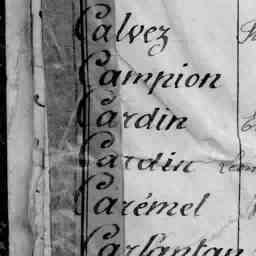 Calvez
Campion
Cardin
Cardin
Carémel